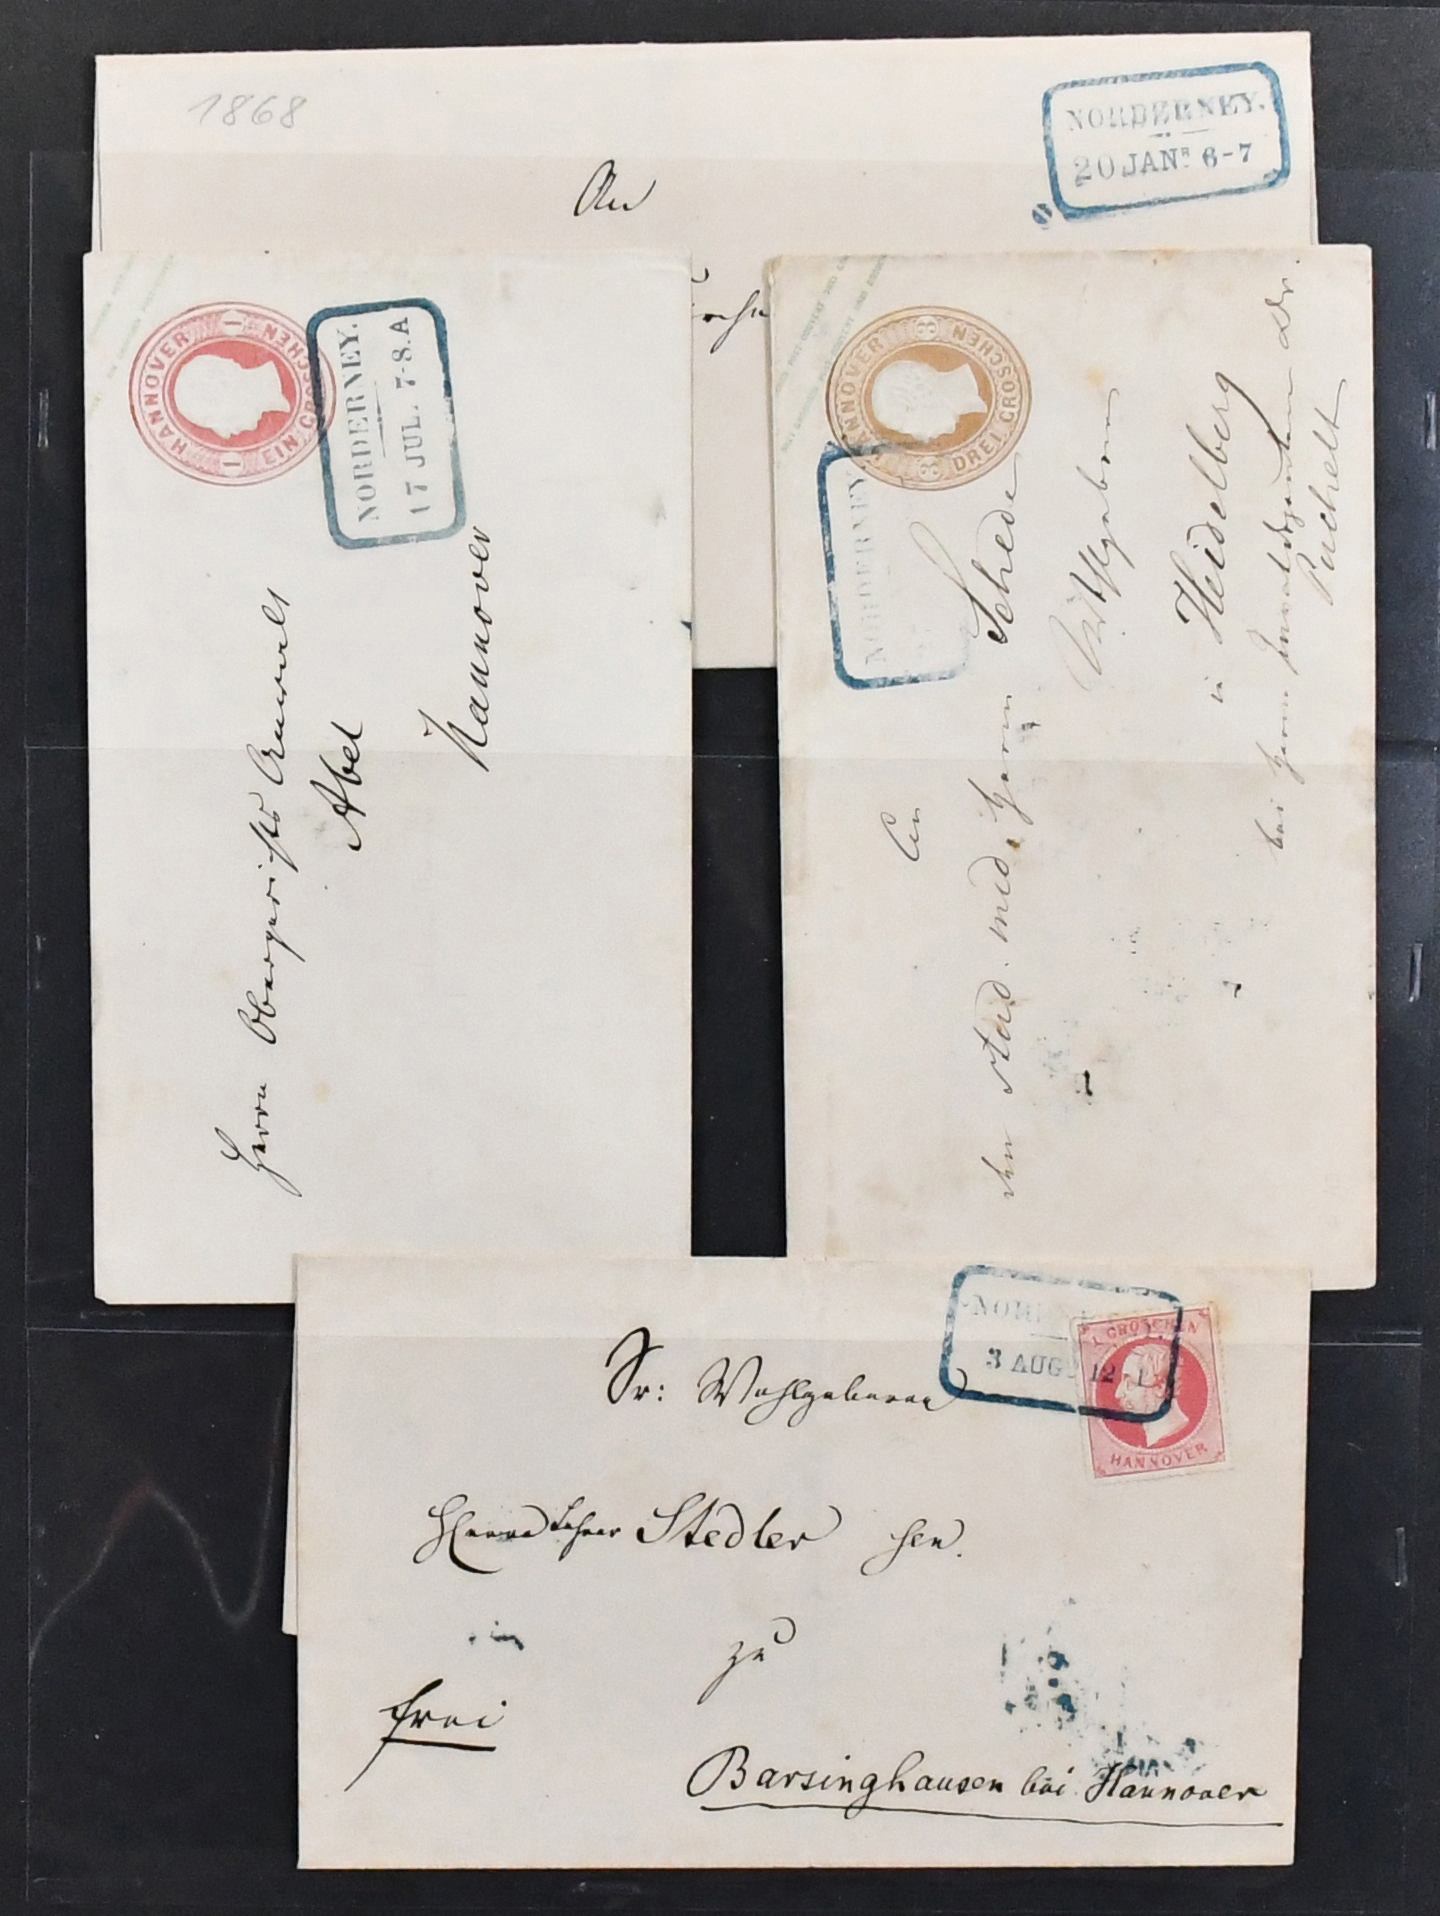 1868
NORDERNEY.
20 JANR. 6-7
An
HANNOVER
EIN GROSCHEN
1
1
NORDERNEY.
17 JUL. 7-8.A
Herrn Obergerichts Anwalt
Abel
Hannover
HANNOVER
DREI GROSCHEN
3
3
NORDERNEY
An
den stud. med. Herrn Schede
Wohlgeboren
in Heidelberg
bei Herrn
Dr.
Puchelt
NOR
3 AUG. 12
1 GROSCHEN
HANNOVER
Sr: Wohlgeboren
Herrn Lehrer Stedler sen.
zu
frei
Barsinghausen bei Hannover